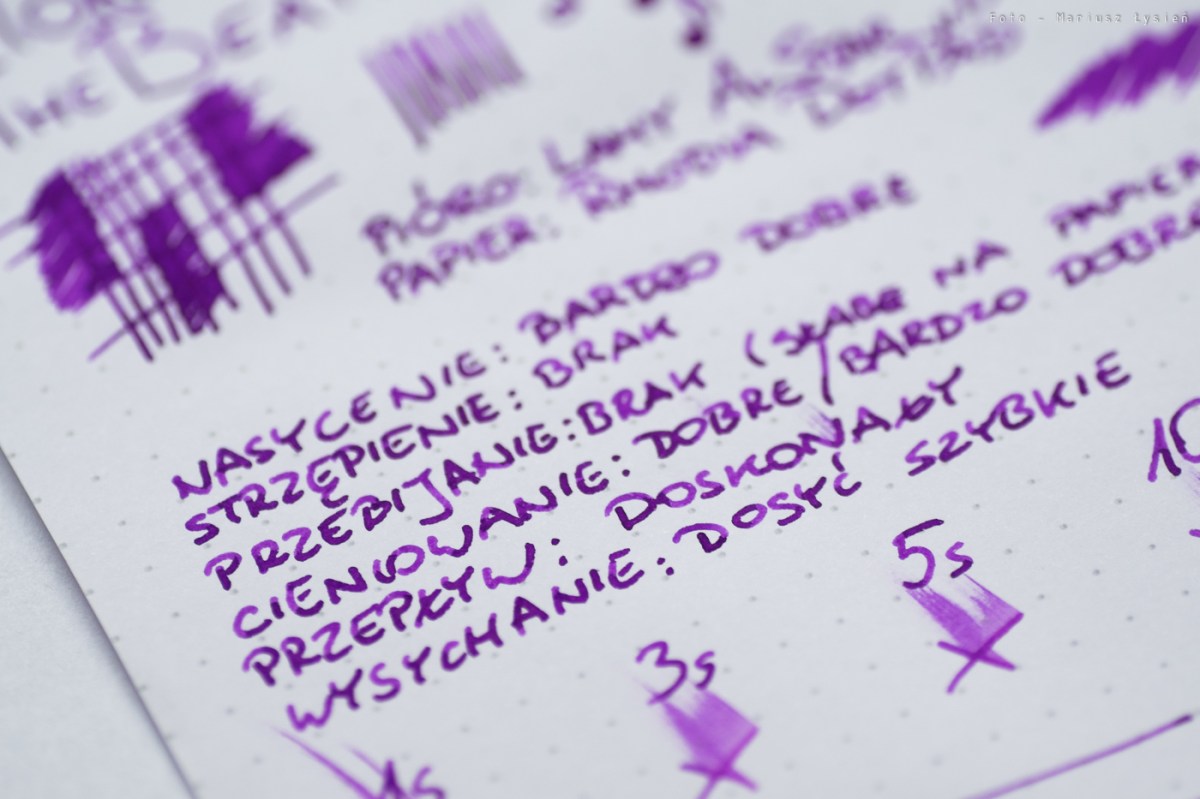 Foto - Mariusz Łysień
THE BEA
PIÓRO: LAMY
PAPIER: RHODIA
NASYCENIE: BARDZO DOBRE
STRZĘPIENIE: BRAK
PRZEBIJANIE: BRAK (SŁABE NA PAPIER
CIENIOWANIE: DOBRE/BARDZO DOBRE
PRZEPŁYW: DOSKONAŁY
WYSYCHANIE: DOSYĆ SZYBKIE
1s
3s
5s
10